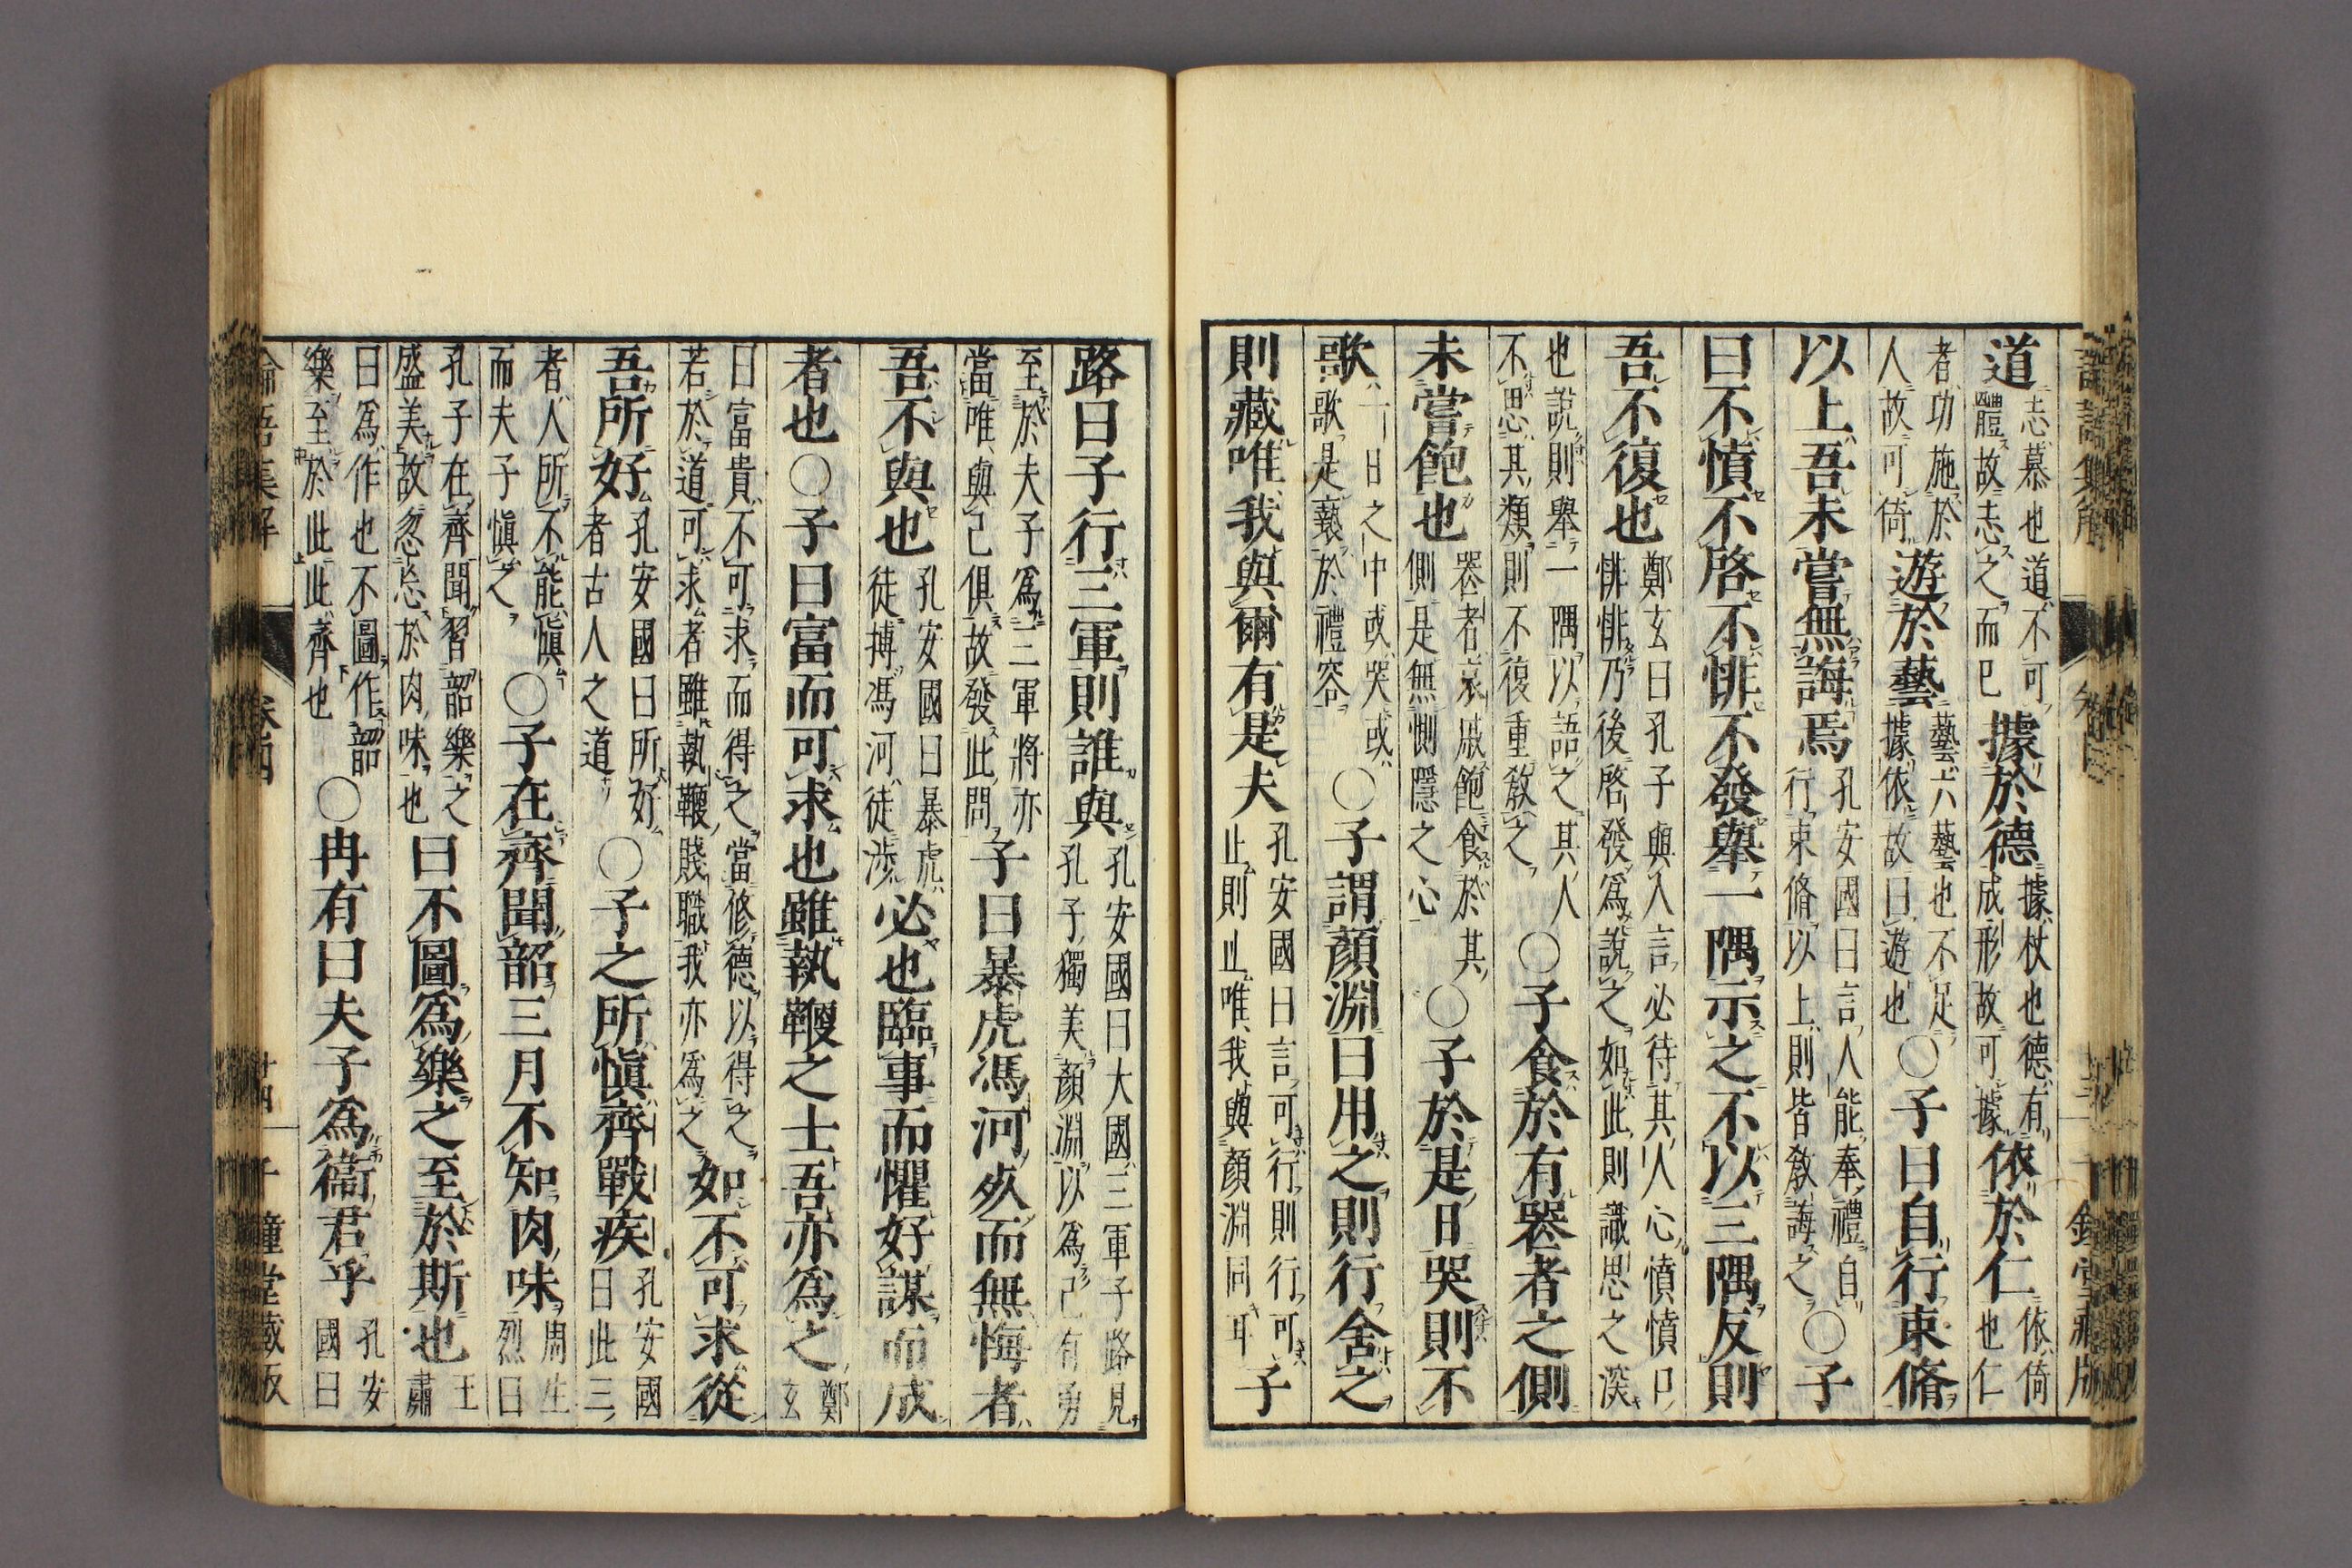 道志慕也道不可體故志之而已據於德據杖也德有成形故可據依於仁依倚也仁
者功施於人故可倚遊於藝藝六藝也不足據依故曰遊也○子曰自行束脩
以上吾未嘗無誨焉孔安國曰言人能奉禮自行束脩以上則皆敎誨之○子
曰不憤不啓不悱不發舉一隅示之不以三隅反則
吾不復也鄭玄曰孔子與人言必待其人心憤憤口悱悱乃後啓發爲說之如此則識思之深
也說則舉一隅以語之其人不思其類則不復重敎之○子食於有喪者之側
未嘗飽也喪者哀戚飽食於其側是無惻隱之心○子於是日哭則不
歌一日之中或哭或歌是褻於禮容○子謂顏淵曰用之則行舍之
則藏唯我與爾有是夫孔安國曰言可行則行可止則止唯我與顏淵同耳子
路曰子行三軍則誰與孔安國曰大國三軍子路見孔子獨美顏淵以爲己有勇
至於夫子爲三軍將亦當唯與己俱故發此問子曰暴虎馮河死而無悔者
吾不與也孔安國曰暴虎徒搏馮河徒涉必也臨事而懼好謀而成
者也○子曰富而可求也雖執鞭之士吾亦爲之鄭玄
曰富貴不可求而得之當修德以得之若於道可求者雖執鞭賤職我亦爲之如不可求從
吾所好孔安國曰所好者古人之道○子之所愼齊戰疾孔安國曰此三
者人所不能愼而夫子愼之○子在齊聞韶三月不知肉味周生烈曰
孔子在齊聞習韶樂之盛美故忽忘於肉味也曰不圖爲樂之至於斯也王肅
曰爲作也不圖作韶樂至於此此齊也○冉有曰夫子爲衞君乎孔安國曰
論語集解 卷四 廿四 千鍾堂藏版